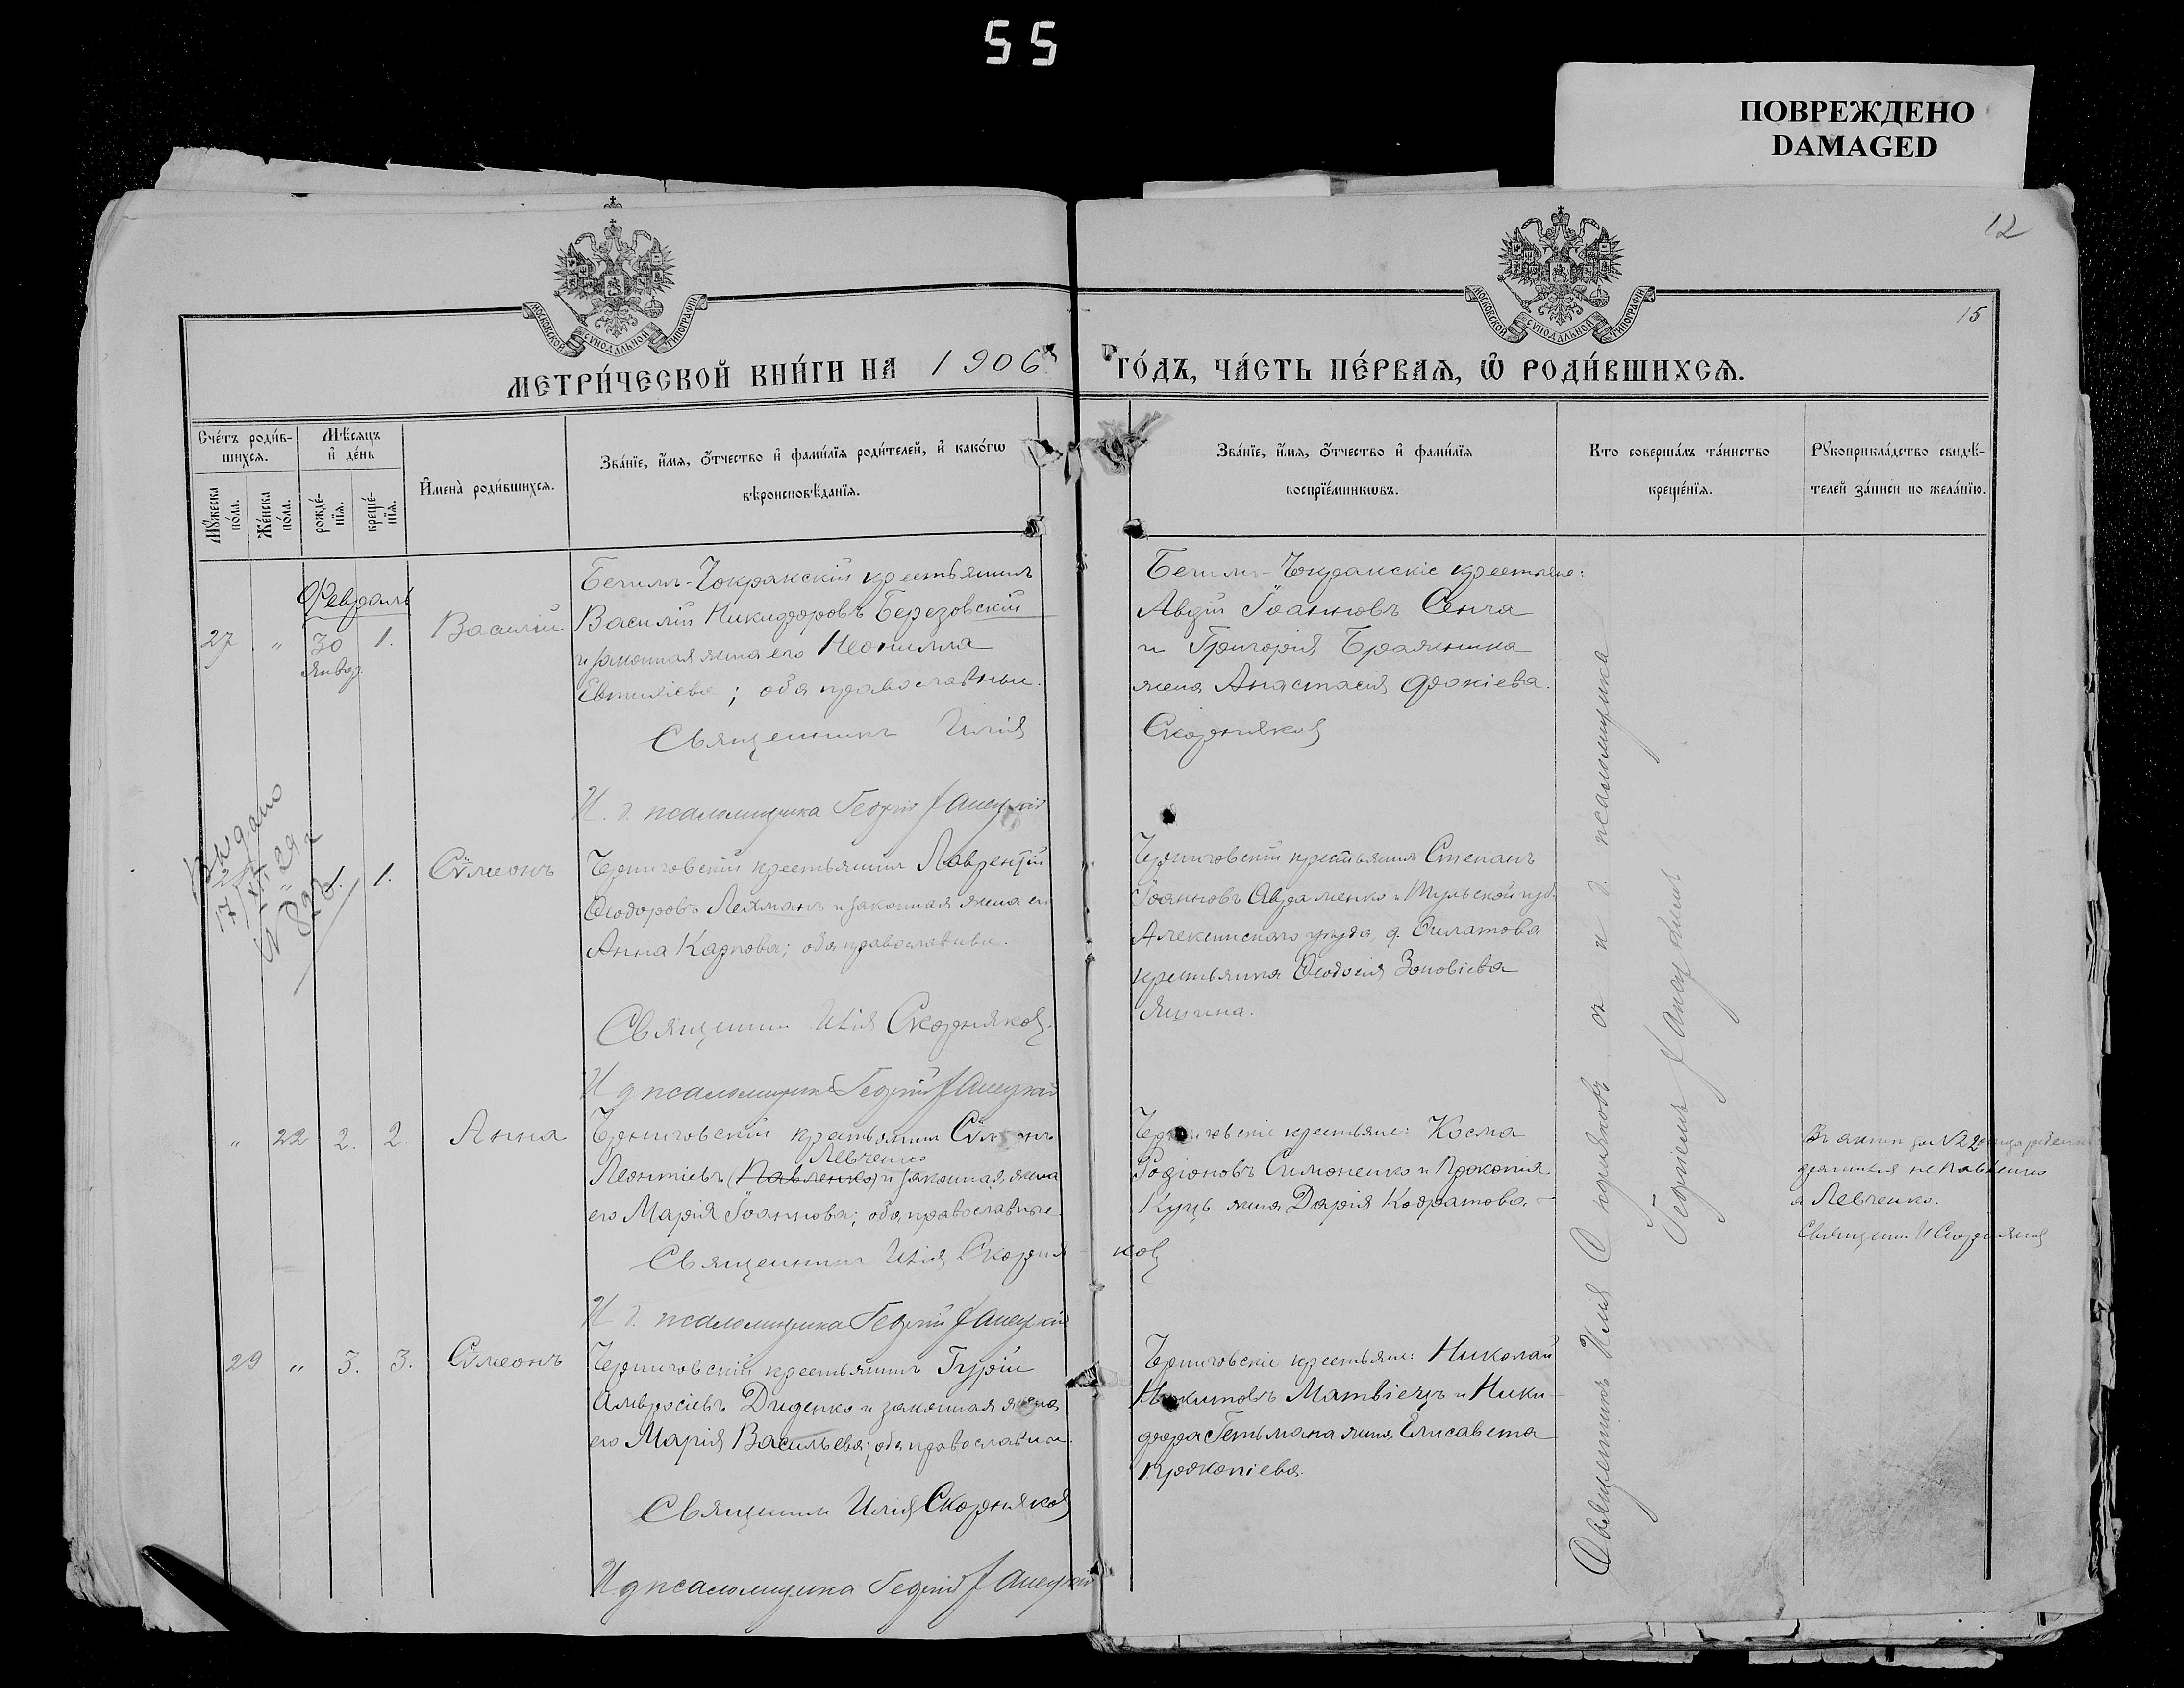 55
ПОВРЕЖДЕНО
DAMAGED
12
15
МОСКОВСКОЙ СѴНОДАЛЬНОЙ ТИПОГРАФІИ
МОСКОВСКОЙ СѴНОДАЛЬНОЙ ТИПОГРАФІИ
МЕТРИ́ЧЕСКОЙ КНИ́ГИ НА 1906й
ГО́ДЪ, ЧА́СТЬ ПЕ́РВАѦ, Ѡ РОДИ́ВШИХСѦ.
Сче́тъ роди́в-
шихсѧ.
Мꙋ́жеска
по́ла.
Же́нска
по́ла.
Мѣ́сѧцъ
и҆ де́нь
рожде́-
нїѧ.
креще́-
нїѧ.
И҆мена̀ роди́вшихсѧ.
Зва́нїе, и҆́мѧ, ѻ҆́тчество и҆ фами́лїѧ роди́телей, и҆ како́гѡ
вѣроисповѣ́данїѧ.
Зва́нїе, и҆́мѧ, ѻ҆́тчество и҆ фами́лїѧ
воспрїе́мникѡвъ.
Кто соверша́лъ та́инство
креще́нїѧ.
Рꙋкоприкла́дство свидѣ́-
телей за́писи по жела́нїю.
Февраль
27 " 30 1. Василій
январ.
Бегимъ-Чокракскій крестьянинъ
Василій Никифоровъ Березовскій
и законная жена его Неонилла
Евтихіева; оба православные.
Священникъ Илія
И. д. псаломщика Георгій
Бегимъ-Чокракскіе крестьяне:
Авдій Іоанновъ Сенча
и Григорія Бражника
жена Анастасія Фокіева.
Скорняковъ
Выдано
17/XII 29 г
№ 826
28 " 1. 1. Сѵмеонъ
Черниговскій крестьянинъ Лаврентій
Ѳеодоровъ Лехманъ и законная жена его
Анна Карпова; оба православные.
Священникъ Илія Скорняковъ.
И д псаломщика Георгій
Черниговскій крестьянинъ Степанъ
Іоанновъ Авраменко и Тульской губ.
Алексинскаго уѣзда, д. Филатова
крестьянка Ѳеодосія Зеновіева
Яшина.
" 22 2. 2. Анна
Черниговскій крестьянинъ Сѵмеонъ
Левченко
Леонтіевъ (Павленко) и законная жена
его Марія Іоаннова; оба православные
Священникъ Илія Скорня-
ковъ
И д. псаломщика Георгій
Черниговскіе крестьяне: Косма
Родіоновъ Симоненко и Прокопія
Куцъ жена Дарія Кодратова.
Въ актѣ за № 22 отца ребенка
фамилія не Павленко
а Левченко.
Священникъ И Скорняковъ
29 " 3. 3. Сѵмеонъ
Черниговскій крестьянинъ Гурій
Амвросіевъ Диденко и законная жена
его Марія Васильева; оба православные.
Священникъ Илія Скорняковъ
И д псаломщика Георгій
Черниговскіе крестьяне: Николай
Никитовъ Матвіецъ и Ники-
фора Гетьмана жена Елисавета
Прокопіева.
Священникъ Илія Скорняковъ съ и д. псаломщика
Георгіемъ